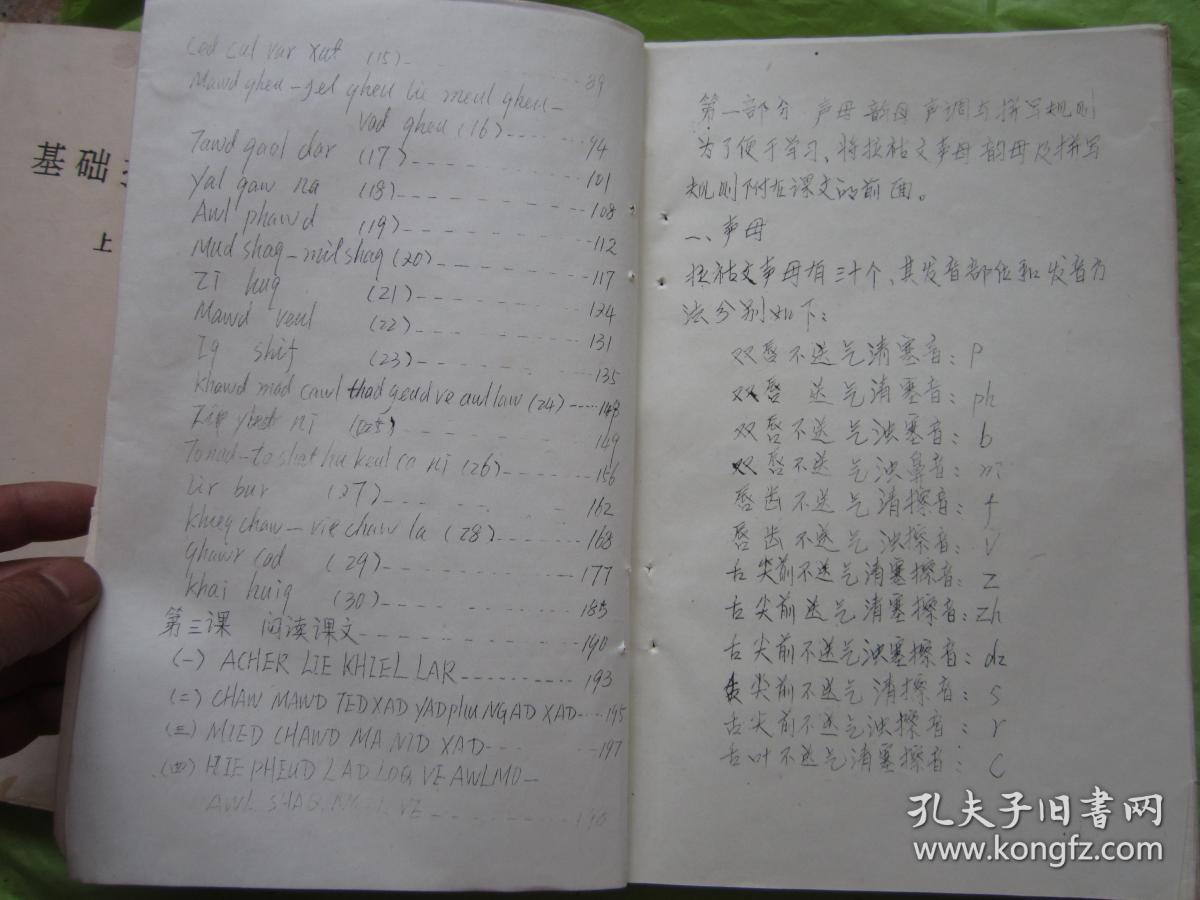 基础
上
Ced cal var xat (15) 89
Mawd gheu-jel gheu lie meul gheu-
vad gheu (16) 94
Tawd qaol dar (17) 101
Yal qaw na (18) 108
Awl phawd (19) 112
Mud shaq-mil shaq (20) 117
ZI huq (21) 124
Mawd veul (22) 131
Iq shif (23) 135
Khawd mad cawl thad qeud ve awl law (24) 148
ni (25) 149
(26) 156
Lir bur (27) 162
Khueq chaw-vie chaw la (28) 168
Ghawr cad (29) 177
Khai huiq (30) 185
第三课 阅读课文 190
(一) ACHER LIE KHIEL LAR 193
(二) CHAW MAWD TED XAD YAD phu NGAD XAD 195
(三) MIED CHAWD MA NID XAD 197
(四) HIE PHEUD LAD LOQ VE AWL MO-
AWL SHAQ VE
第一部分 声母韵母声调与拼写规则
为了便于学习、将拉祜文声母韵母及拼写
规则附在课文的前面。
一、声母
拉祜文声母有三十个、其发音部位和发音方
法分别如下：
双唇不送气清塞音：P
双唇 送气清塞音：ph
双唇不送气浊塞音：b
双唇不送气浊鼻音：m
唇齿不送气清擦音：f
唇齿不送气浊擦音：V
舌尖前不送气清塞擦音：Z
舌尖前送气清塞擦音：zh
舌尖前不送气浊塞擦音：dz
舌尖前不送气清擦音：s
舌尖前不送气浊擦音：r
舌叶不送气清塞擦音：C
孔夫子旧书网
www.kongfz.com